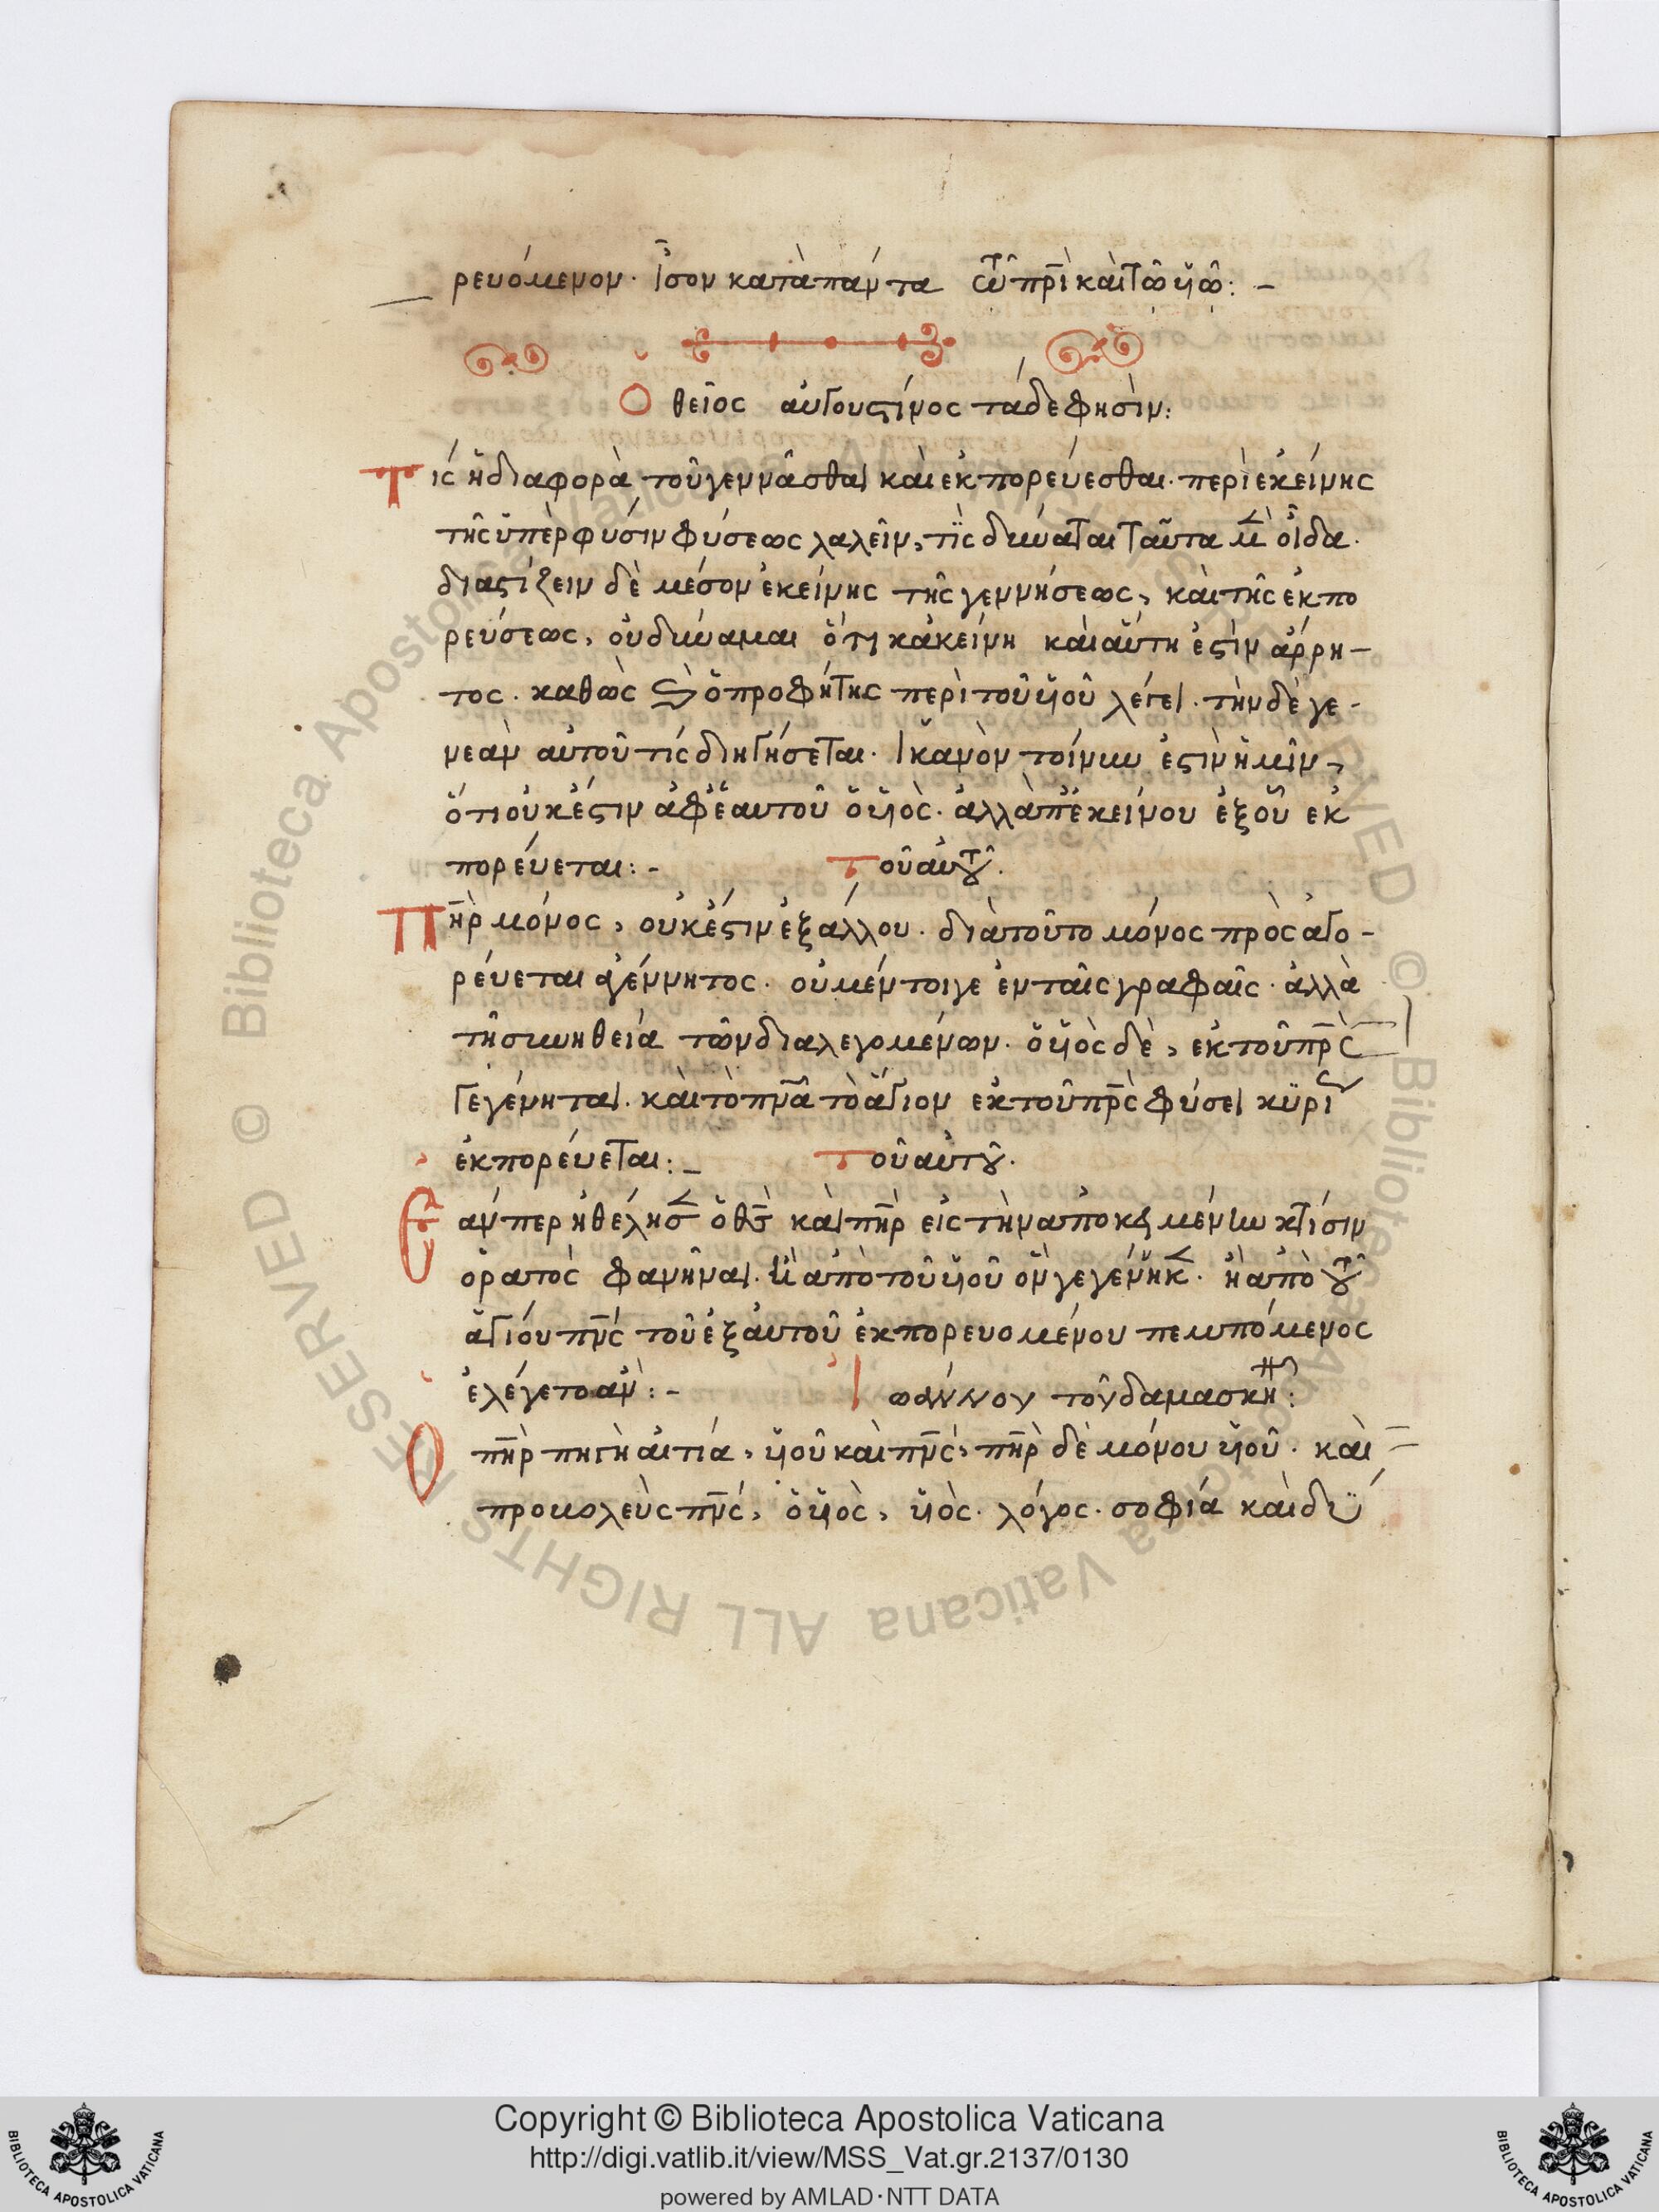 ρευόμενον· ἴσον κατὰ πάντα τῶ πρὶ καὶ τῶ υἱῶ: –
Ὁ θεῖος αὐγουστίνος τάδε φησίν:
Τίς ἡ διαφορὰ τοῦ γεννᾶσθαι καὶ ἐκπορεύεσθαι· περὶ ἐκείνης
τῆς ὑπὲρ φύσιν φύσεως λαλεῖν, τίς δύναται ταῦτα μὴ οἶδα·
διαστίζειν δὲ μέσον ἐκείνης τῆς γεννήσεως, καὶ τῆς ἐκπο
ρεύσεως, οὐ δύναμαι ὅτι κἀκείνη καὶ αὕτη ἐστὶν ἄρρη–
τος· καθὼς ὁ προφήτης περὶ τοῦ υἱοῦ λέγει· τὴν δὲ γε–
νεὰν αὐτοῦ τίς διηγήσεται· ἱκανὸν τοίνυν ἐστὶν ἡμῖν,
ὅτι οὐκ ἔστιν ἀφ' ἑαυτοῦ ὁ υἱὸς· ἀλλ' ἀπ' ἐκείνου ἐξ οὗ ἐκ
πορεύεται: – Τοῦ αὐτοῦ·
Πηρ μόνος, οὐκ ἔστιν ἐξ ἄλλου· διὰ τοῦτο μόνος προσαγο–
ρεύεται ἀγέννητος· οὐ μέντοιγε ἐν ταῖς γραφαῖς· ἀλλὰ
τῆ συνηθεία τῶν διαλεγομένων· ὁ υἱὸς δὲ, ἐκ τοῦ πρς
γεγένηται· καὶ τὸ πνα τὸ ἅγιον ἐκ τοῦ πρς φύσει κυρί
ἐκπορεύεται: – Τοῦ αὐτοῦ·
Ἐάνπερ ἠθέλησ ὁ θς καὶ πηρ εἰς τὴν ἀποκειμένην κτίσιν
ὁρατὸς φανῆναι· μὴ ἀπὸ τοῦ υἱοῦ ὃν γεγένηκ· ἢ ἀπὸ τοῦ
ἁγίου πνς τοῦ ἐξ αὐτοῦ ἐκπορευομένου πεμπόμενος
ἐλέγετο ἄν: – Ἰωάννου τοῦ δαμασκη:
Ὁ πηρ πηγὴ αἰτία, υἱοῦ καὶ πνς, πηρ δὲ μόνου υἱοῦ· καὶ
προβολεὺς πνς, ὁ υἱὸς, υἱὸς· λόγος· σοφία καὶ δύ
Copyright © Biblioteca Apostolica Vaticana
http://digi.vatlib.it/view/MSS_Vat.gr.2137/0130
powered by AMLAD·NTT DATA
BIBLIOTECA APOSTOLICA VATICANA
BIBLIOTECA APOSTOLICA VATICANA
© Biblioteca Apostolica Vaticana ALL RIGHTS RESERVED © Biblioteca Apostolica Vaticana ALL RIGHTS RESERVED